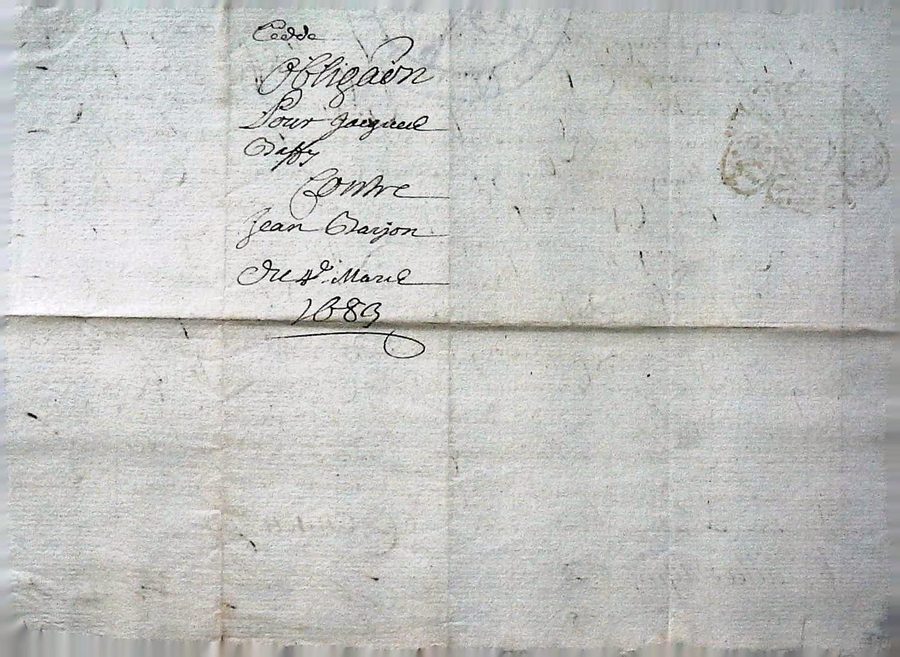 Cedde
Obligaon
Pour Jacques
Baffy
Contre
Jean Barjon
Du 4e Mars
1689